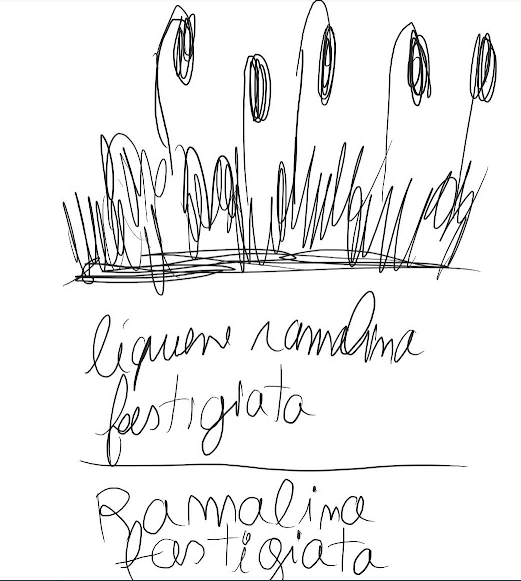 liquene ramalina
fastigiata
Ramalina
fastigiata